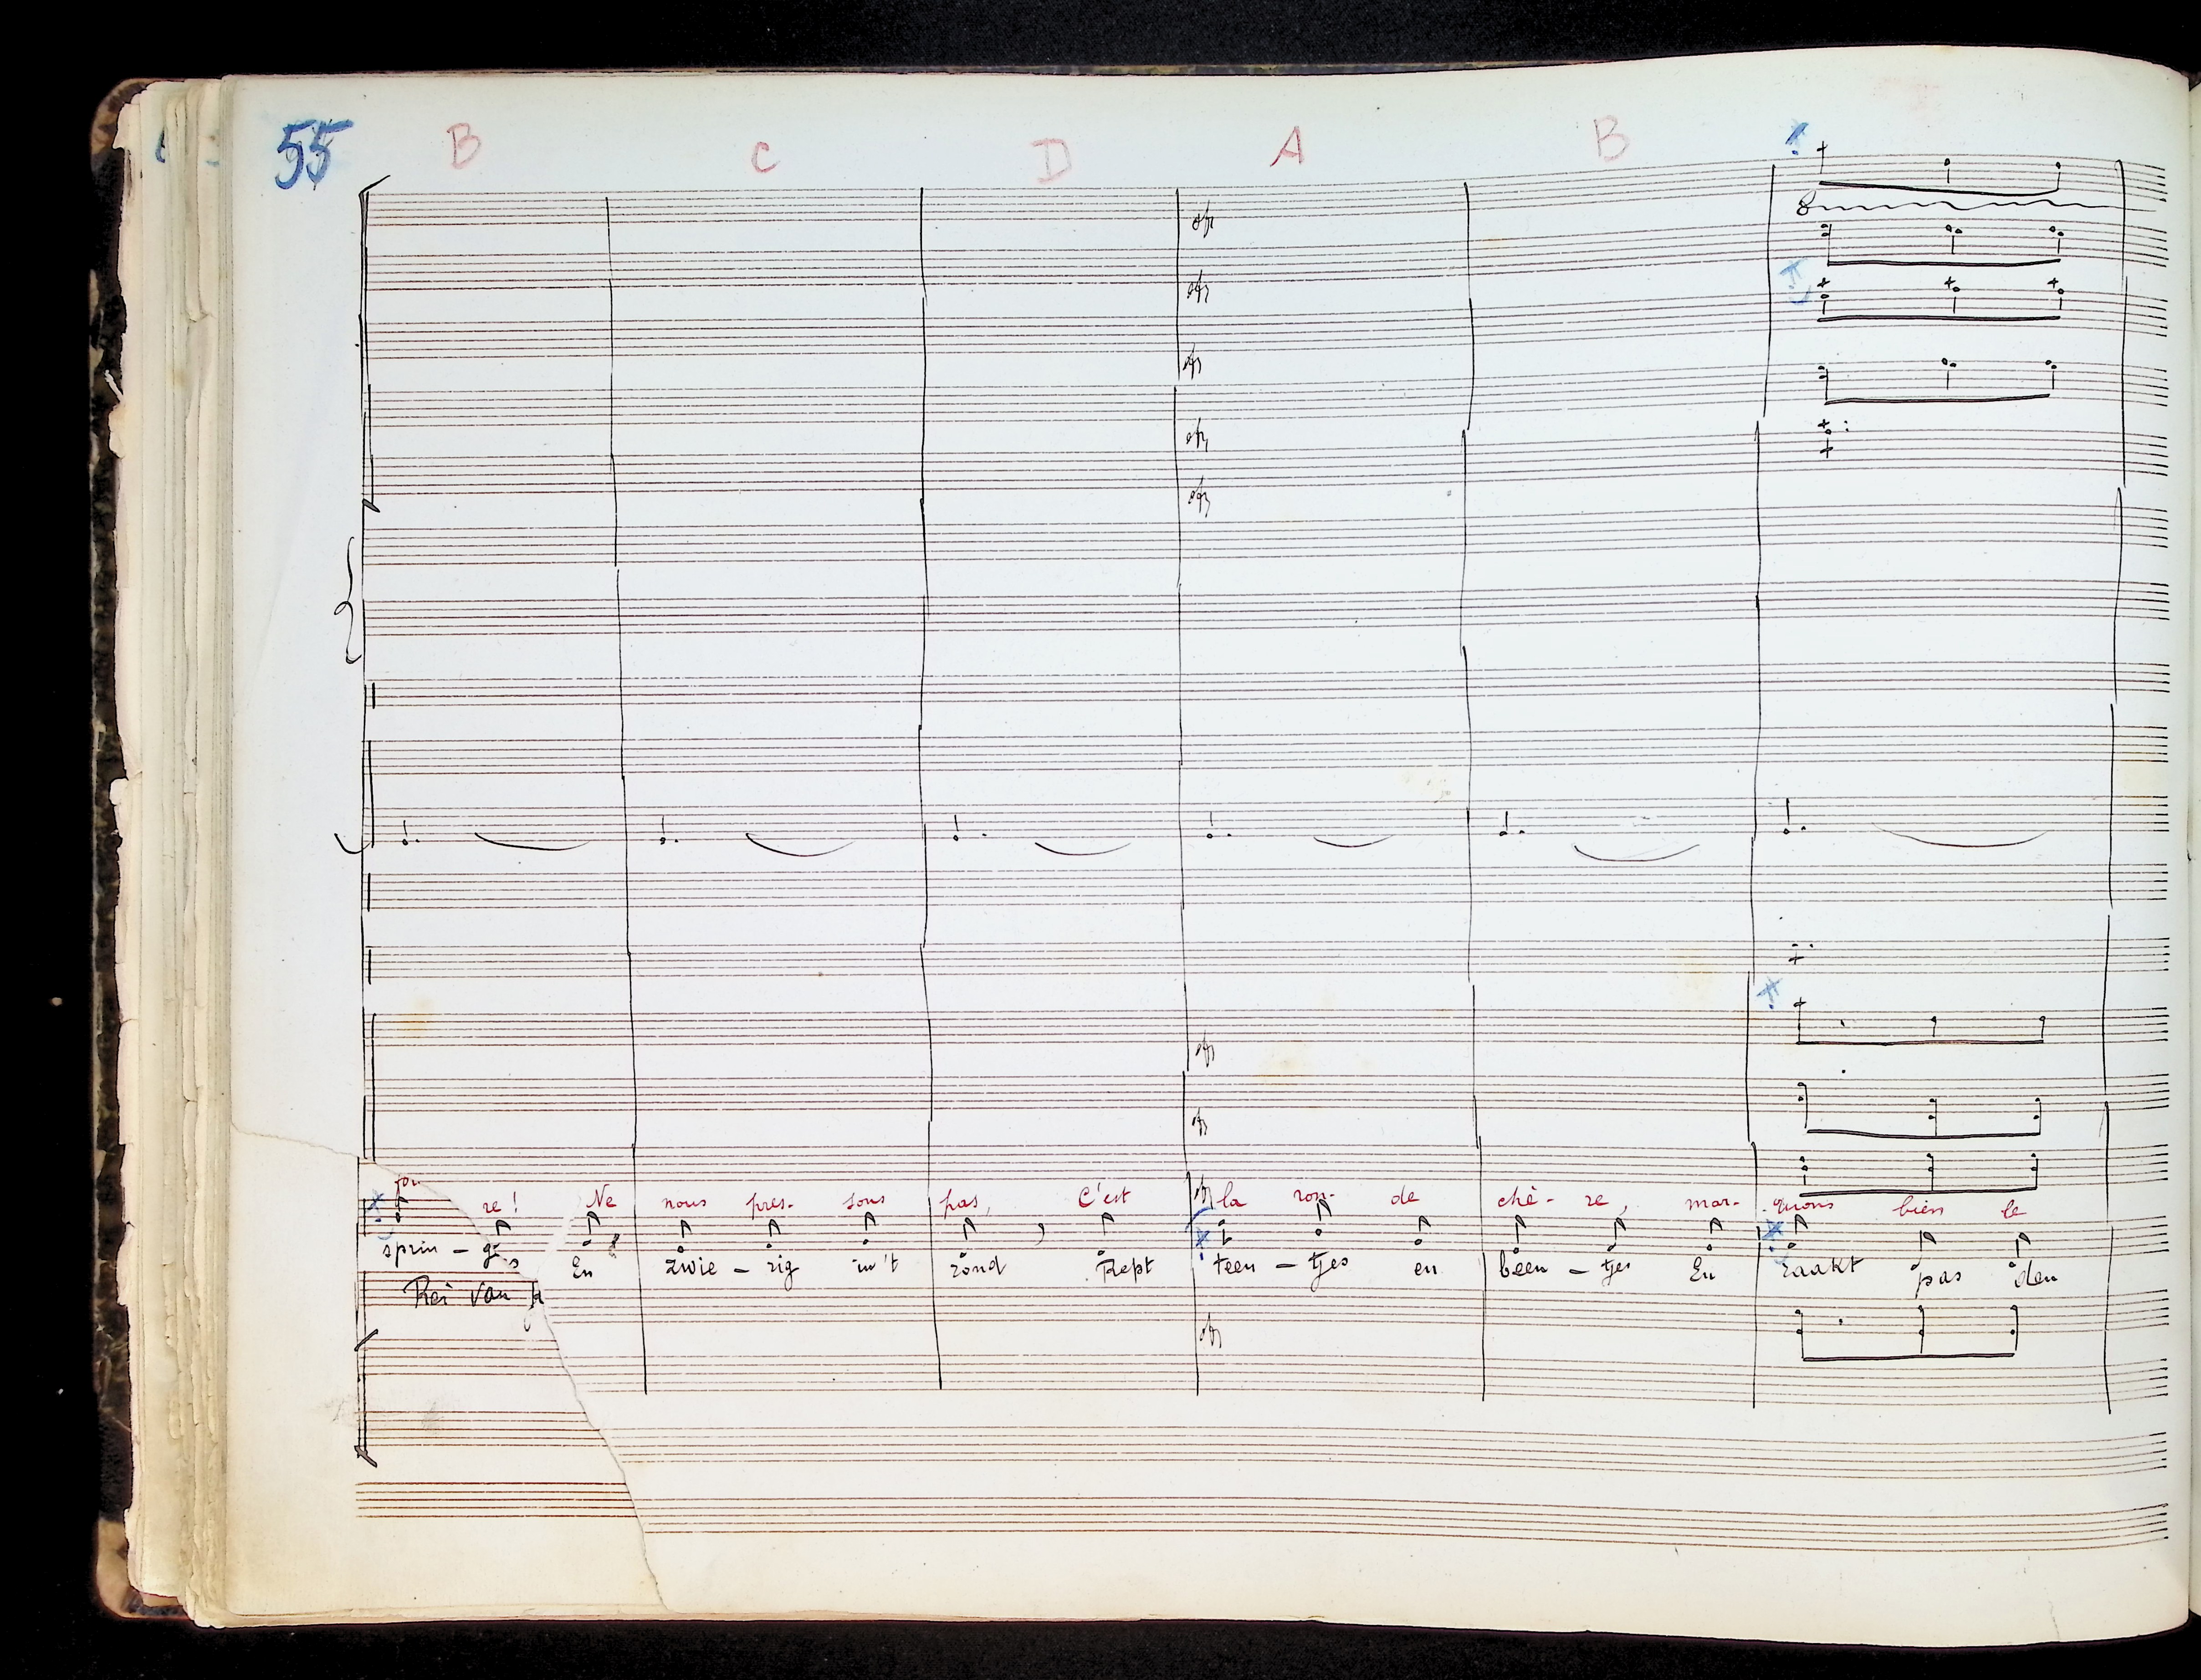 55 B C D A B
8
re! Ne nous pres- sons pas, C'est la ron- de chè- re, mar- quons bien le
sprin - En zwie - rig in't rond Rept teen - tjes en been - tjes En raakt pas den
Rei van